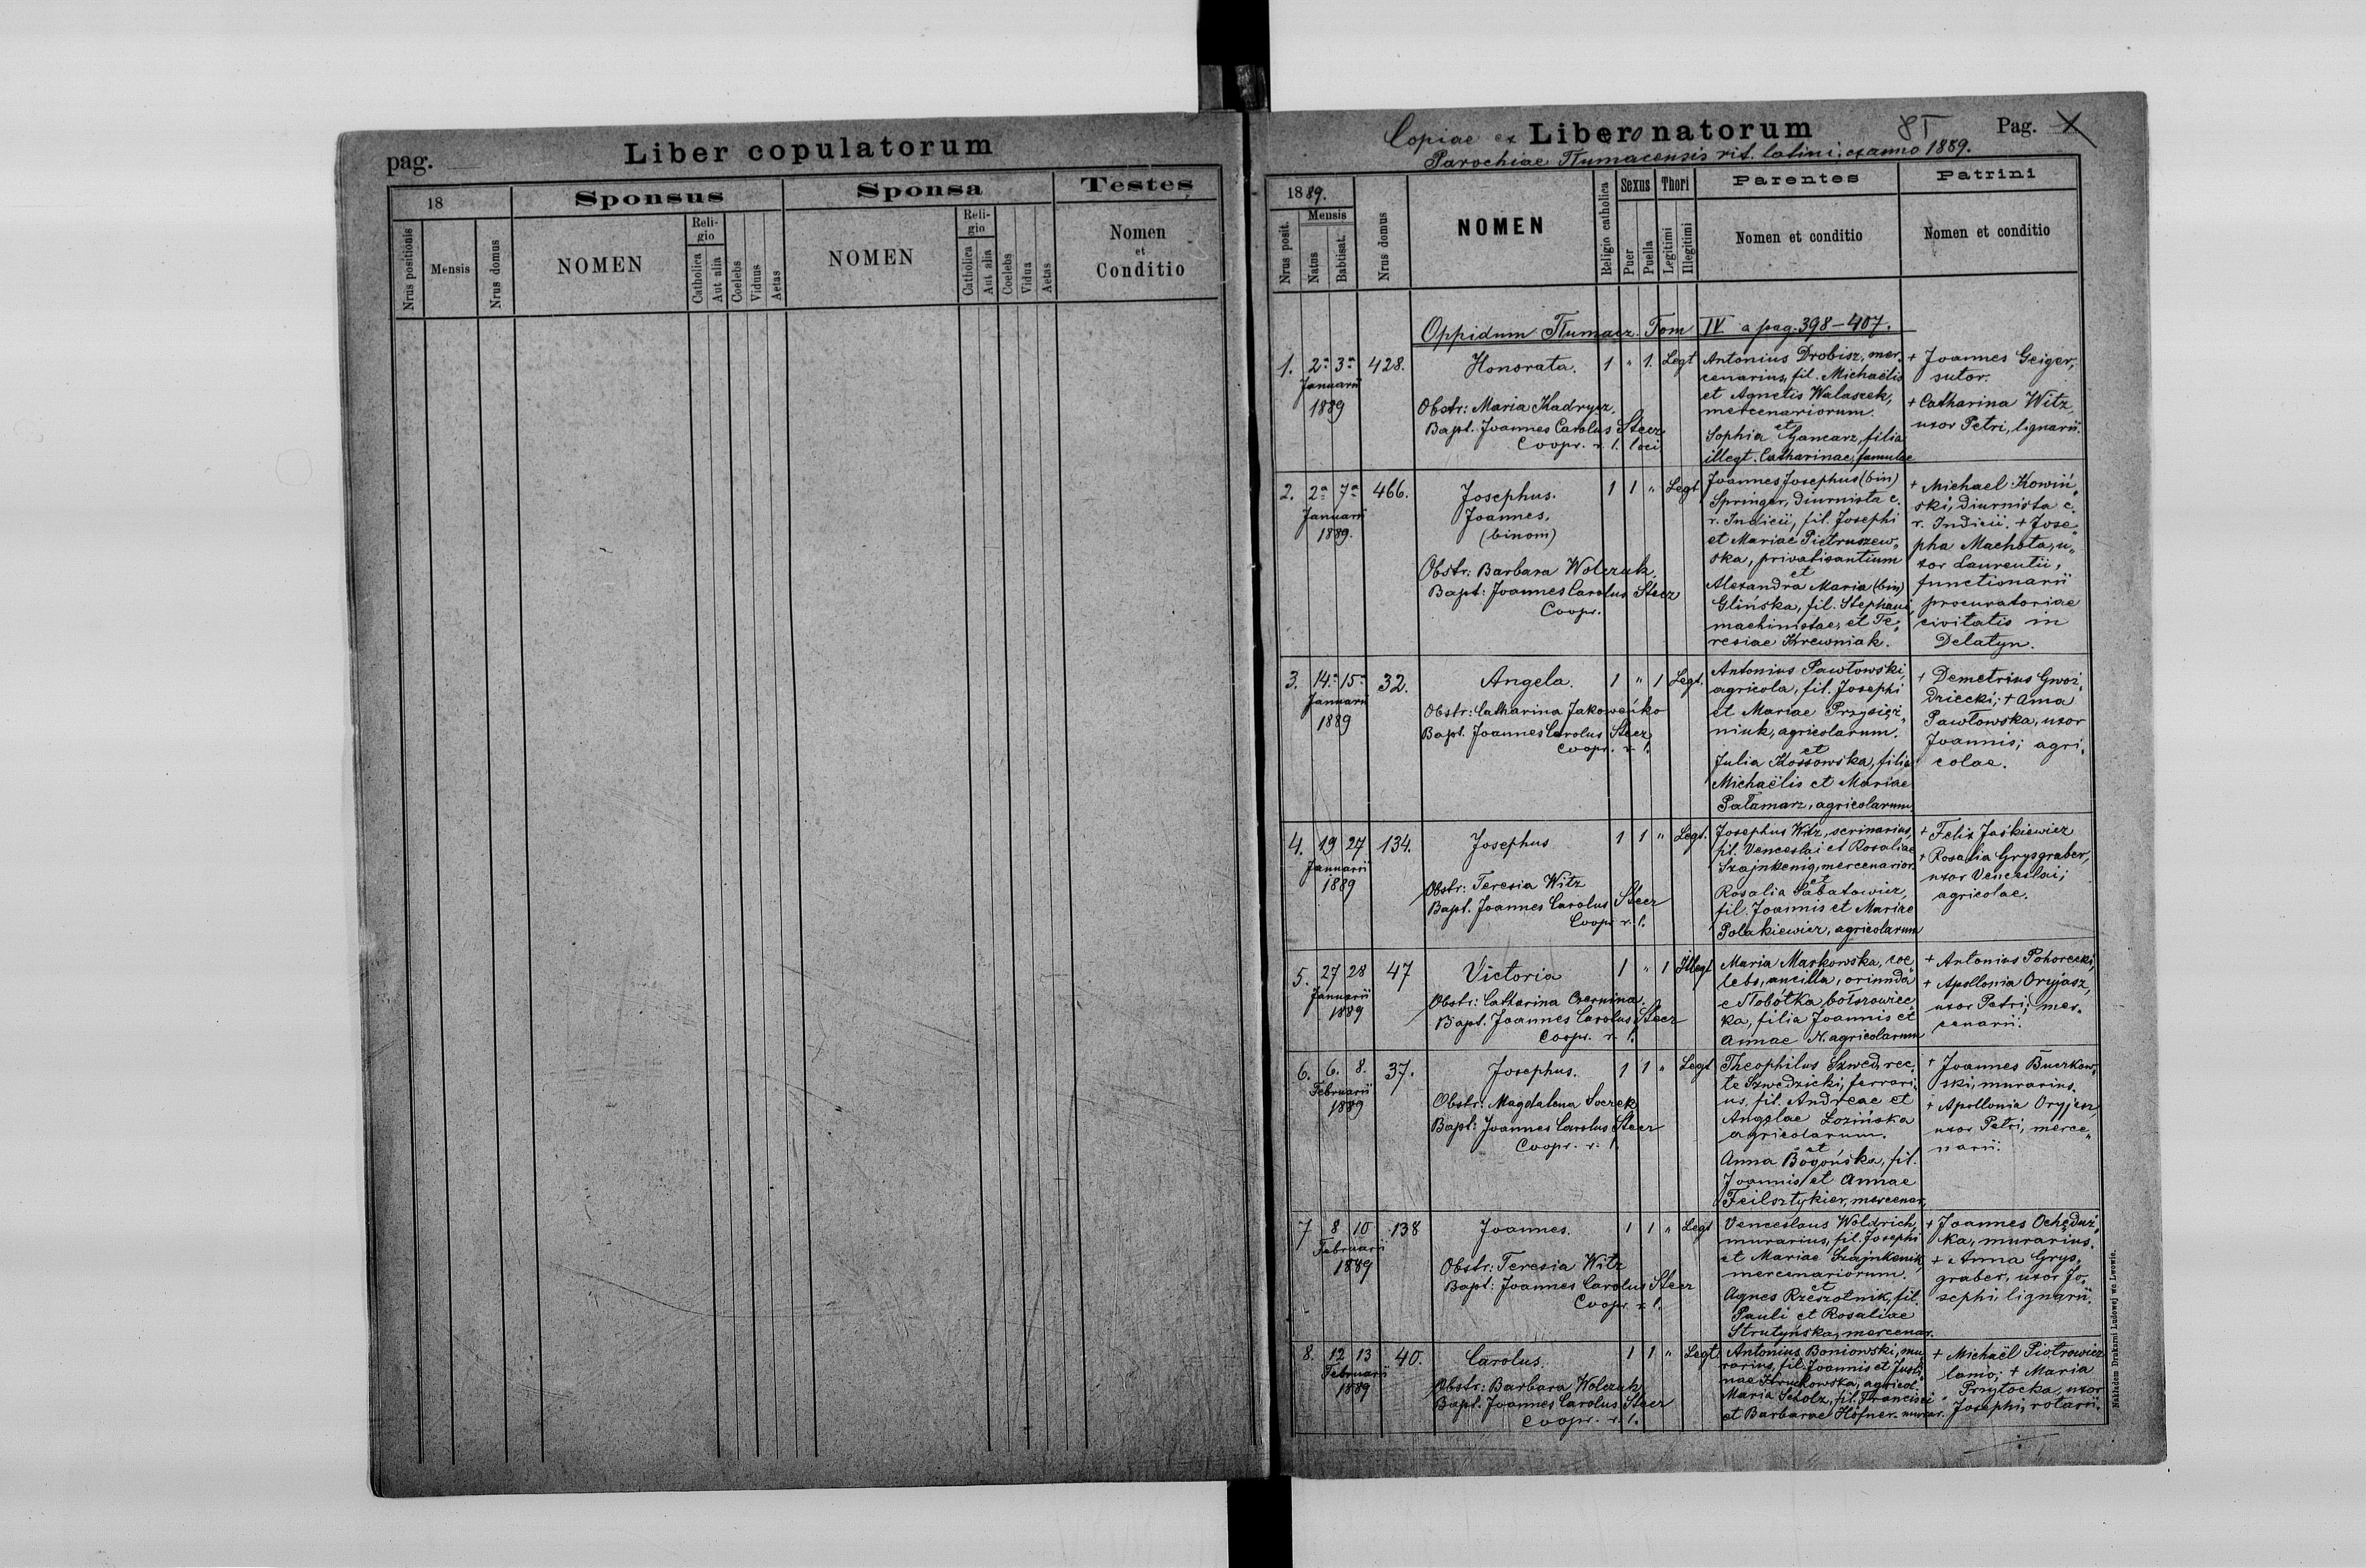 pag.
Liber copulatorum
18
Sponsus
Sponsa
Testes
Nrus positionis
Mensis
Nrus domus
NOMEN
Reli-
gio
Catholica
Aut alia
Coelebs
Viduus
Aetas
NOMEN
Reli-
gio
Catholica
Aut alia
Coelebs
Vidua
Aetas
Nomen
et
Conditio
Copiae ex Libero natorum
8I
Pag. 1
Parochiae Tłumacensis rit. latini; ex anno 1889.
1889.
Nrus posit.
Mensis
Natus
Babtisat.
Nrus domus
NOMEN
Religio catholica
Sexus
Puer
Puella
Thori
Legitimi
Illegitimi
Parentes
Nomen et conditio
Patrini
Nomen et conditio
Oppidum Tłumacz. Tom IV a pag. 398-407.
1. 2a 3a 428. Honorata. 1 " 1. Legt
Januarii
1889
Obstr: Maria Kadrycz.
Bapt. Joannes Carolus Steer
Coopr. r. l. loci
Antonius Drobisz, mer.
cenarius, fil. Michaëlis
et Agnetis Walaszek,
mercenariorum.
et
Sophia Gancarz, filia
illegt. Catharinae, famulae
+ Joannes Geiger,
sutor.
+ Catharina Witz,
uxor Petri, lignarii.
2. 2a 7a 466. Josephus. 1 1 " Legt
Januarii
1889.
Joannes.
(binom)
Obstr: Barbara Wolczuk.
Bapt: Joannes Carolus Steer
Coopr.
Joannes Josephus (bin)
Springer, diurnista c.
r. Indicii, fil. Josephi
et Mariae Pietruszew„
ska, privatisantium
et
Alexandra Maria (bin)
Glińska, fil. Stephani,
machinistae, et Te„
resiae Krewniak.
+ Michael Kowiń„
ski, diurnista c.
r. Indicii. + Jose„
pha Machota, u„
xor Laurentii,
functionarii
procuratoriae
civitatis in
Delatyn.
3. 14a 15a 32. Angela. 1 " 1 Legt.
Januarii
1889
Obstr: Catharina Jakoweńko
Bapt. Joannes Carolus Steer
Coopr. r. l.
Antonius Pawłowski,
agricola, fil. Josephi
et Mariae Przysięż„
niuk, agricolarum.
et
Julia Kossowska, filia
Michaëlis et Mariae
Pałamarz, agricolarum
+ Demetrius Gwoź„
dziecki; + Anna
Pawłowska, uxor
Joannis; agri„
colae.
4. 19 27 134. Josephus 1 1 " Legt.
Januarii
1889
Obstr: Teresia Witz
Bapt. Joannes Carolus Steer
Coopr r. l.
Josephus Witz, scrinarius,
fil. Venceslai et Rosaliae
Szajnkenig, mercenarior.
et
Rosalia Sabatowicz,
fil. Joannis et Mariae
Polakiewicz, agricolarum
+ Felix Jaśkiewicz
+ Rosalia Grysgraber,
uxor Venceslai;
agricolae.
5. 27 28 47 Victoria 1 " 1 Illegt
Januarii
1889
Obstr: Catharina Czernina.
Bapt. Joannes Carolus Steer
Coopr. r. l.
Maria Markowska, coe„
lebs, ancilla, oriunda
e Słobótka bołszowiec
ka, filia Joannis et
Annae N. agricolarum
+ Antonius Pohorecki,
+ Apollonia Oryjasz,
uxor Petri; mer„
cenarii.
6. 6. 8. 37. Josephus. 1 1 " Legt
Februarii
1889
Obstr: Magdalena Soczek
Bapt: Joannes Carolus Steer
Coopr. r. l.
Theophilus Szwed, rec„
te Szwedzicki, ferrari„
us, fil. Andreae et
Angelae Lozińska
agricolarum.
et
Anna Bogońska, fil.
Joannis et Annae
Feilsztykier, mercenar.
+ Joannes Buczkow„
ski, murarius.
+ Apollonia Oryjasz
uxor Petri, merce„
narii.
7 8 10 138 Joannes. 1 1 " Legt
Februarii
1889
Obstr: Teresia Witz
Bapt: Joannes Carolus Steer
Coopr r. l.
Venceslaus Woldrich,
murarius, fil. Josephi
et Mariae Szajnkenik,
mercenariorum.
et
Agnes Rzeszotnik, fil.
Pauli et Rosaliae
Strutyńska, mercenar.
+ Joannes Ochęduż„
ka, murarius.
+ Anna Grys„
graber, uxor Jo„
sephi, lignarii.
8. 12 13 40. Carolus. 1 1 " Legt
Februarii
1889
Obstr: Barbara Wolczuk
Bapt. Joannes Carolus Steer
Coopr. r. l.
Antonius Boniowski, mu„
rarius, fil. Joannis et Justi„
nae Kruckowska, agricol.
Maria Scholz, fil. Francisci
et Barbarae Höfner.
+ Michaël Piotrowicz
lanio; + Maria
Przytocka, uxor
Josephi, rotarii.
Nakładem Drukarni Ludowej we Lwowie.